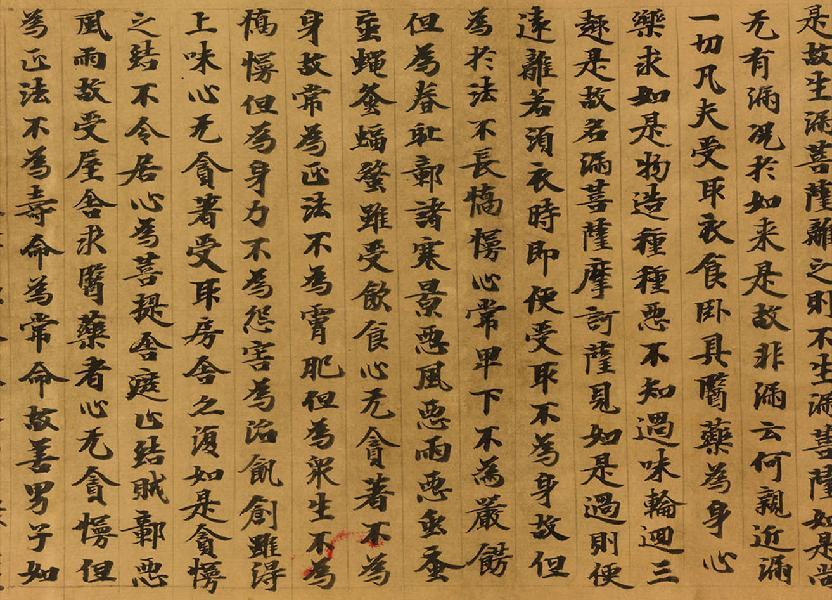 是故生漏菩薩離之則不生漏菩薩如是尚
无有漏况於如来是故非漏云何親近漏
一切凡夫受取衣食卧具醫藥為身心
樂求如是物造種種惡不知過味輪迴三
趣是故名漏菩薩摩訶薩見如是過則便
遠離若須衣時即便受取不為身故但
為於法不長憍慢心常卑下不為嚴餝
但為羞耻鄣諸寒暑惡風惡雨惡虫蚤
䖟蠅蚤蝠螫雖受飲食心无貪著不為
身故常為正法不為膚肥但為衆生不為
憍慢但為身力不為怨害為治飢創雖得
上味心无貪著受取房舍之復如是貪慢
之結不令居心為菩提舍庭止結賊鄣惡
風雨故受屋舍求醫藥者心无貪慢但
為正法不為壽命為常命故善男子如